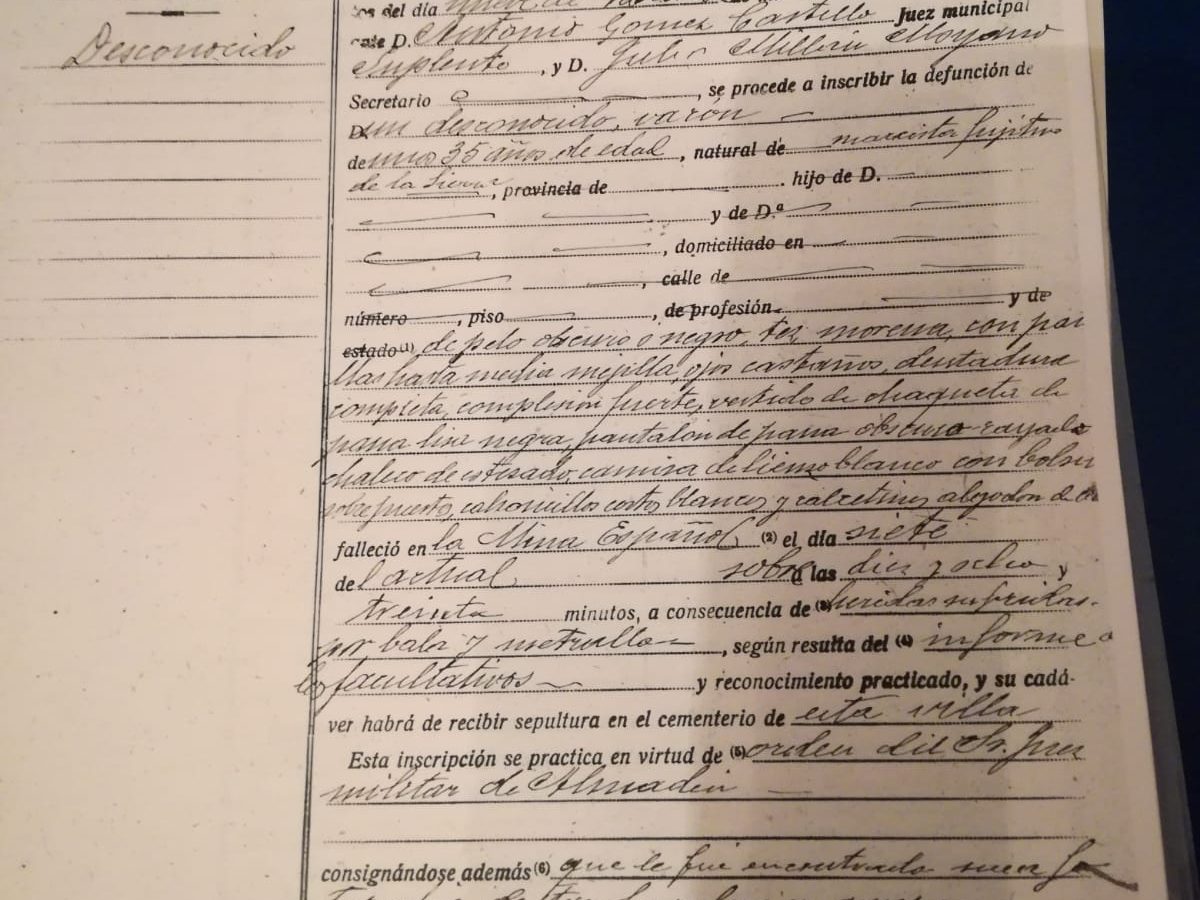 Desconocido
del día nueve de
D. Antonio Gomez Castillo Juez municipal
Suplente, y D. Julio Millerin Moyano
Secretario, se procede a inscribir la defunción de
D. un desconocido, varón
de unos 35 años de edad, natural de marxista fugitivo
de la Sierra, provincia de hijo de D.
y de D.ª
, domiciliado en
, calle de
número, piso, de profesión y de
estado (1) de pelo obscuro o negro, tez morena, con pati
llas hasta media mejilla, ojos castaños, dentadura
completa, complesion fuerte, vestido de chaqueta de
pana lisa negra, pantalon de pana obscuro rayado
chaleco de estezado, camisa de lienzo blanco con bolsi
sobrepuesto, calzoncillos cortos blancos y calcetines algodon de
falleció en la Mina Español (2) el día siete
del actual sobre las diez y ocho y
treinta minutos, a consecuencia de (3) heridas sufridas
por bala y metralla, según resulta del (4) informe
facultativos y reconocimiento practicado, y su cadá-
ver habrá de recibir sepultura en el cementerio de esta villa
Esta inscripción se practica en virtud de (5) orden del Sr. Juez
militar de Almadén
consignándose además (6) que le fue encontrado